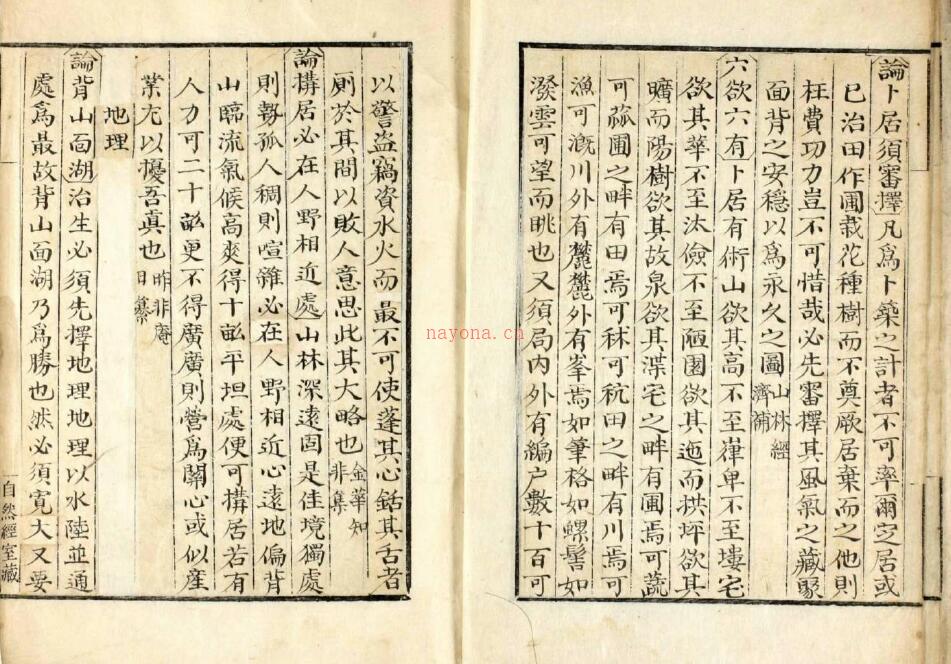 論卜居須審擇凡爲卜築之計者不可率爾定居或
已治田作圃栽花種樹而不奠厥居棄而之他則
枉費功力豈不可惜哉必先審擇其風氣之藏聚
面背之安穩以爲永久之圖山林經濟補
六欲六有卜居有術山欲其高不至嵂卑不至塿宅
欲其華不至汰儉不至陋園欲其迤而拱坪欲其
曠而陽樹欲其故泉欲其渫宅之畔有圃焉可蔬
可苽圃之畔有田焉可秫可秔田之畔有川焉可
漁可漑川外有麓麓外有峯焉如筆格如螺髻如
潑雲可望而眺也又須局内外有編户數十百可
以警盜竊資水火而最不可使蓬其心銛其舌者
厠於其間以敗人意思此其大略也金華知非集
論搆居必在人野相近處山林深遠固是佳境獨處
則勢孤人稠則喧雜必在人野相近心遠地偏背
山臨流氣候高爽得十畝平坦處便可搆居若有
人力可二十畝更不得廣廣則營爲關心或似產
業尤以擾吾眞也昨非庵日纂
地理
論背山面湖治生必須先擇地理地理以水陸並通
處爲最故背山面湖乃爲勝也然必須寬大又要
自然經室藏
nayona.cn